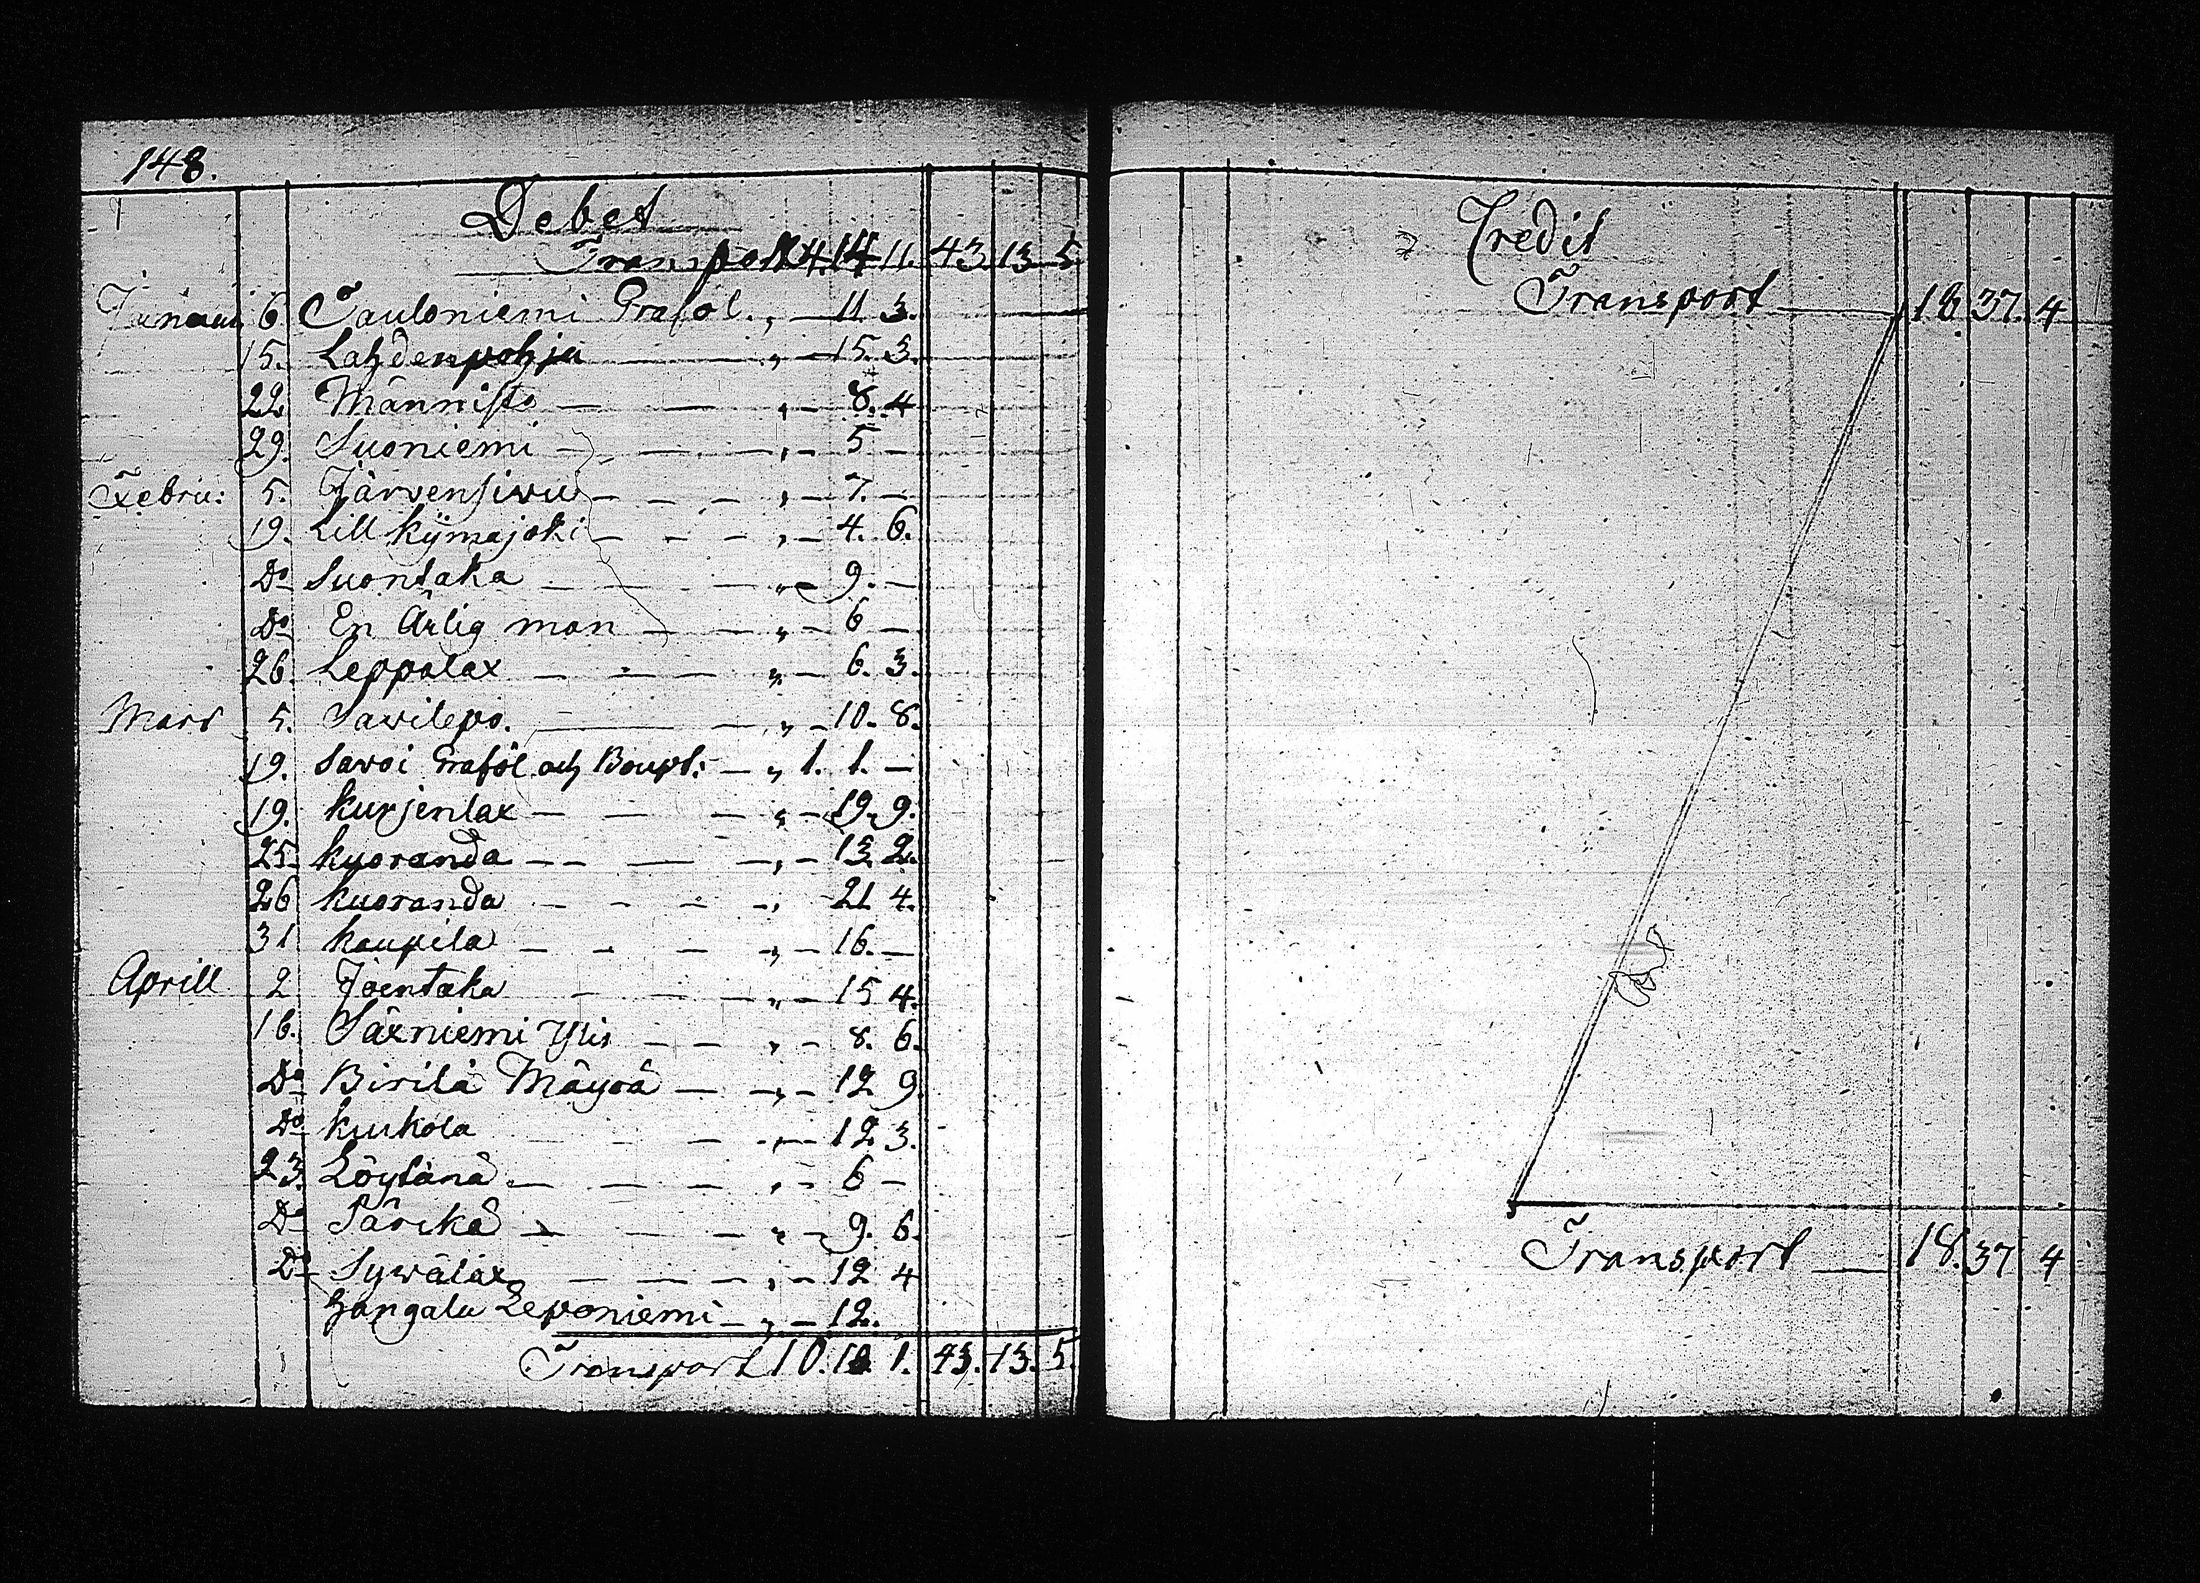 148.
Debet
Transport 4. 14 11. 43. 13. 5
Januari 6. Tauloniemi Grafol. „ — 11. 3.
15. Lahdenpohja — „ — 15. 3.
22 Männistö — — „ — 8. 4
29. Suoniemi — — „ — 5 —
Febru: 5. Järvensivu — — — „ — 7. —
19. Lill Kÿmajoki — — — „ — 4. 6.
Do Suontaka — — „ — 9. —
Do En Ärlig man — — „ — 6 —
26. Leppälax — — — „ — 6. 3.
Mars 5. Savilepo. — — „ — 10. 8.
19. Savoi Graföl och Boupt: — „ 1. 1. —
19. Kurjenlax — — — „ — 19. 9.
25 Kuoranda — — — „ — 13. 2.
26 Kuoranda — — — — „ 21 4.
31 Kaupila — — — „ — 16. —
Aprill 2 Joentaka — — „ — 15 4.
16. Säxniemi Ylis — — „ — 8. 6.
Do Birilä Mäyrä — „ — 12 9.
Do Kuukola — — — „ — 12 3.
23. Löytänä — — — „ — 6 —
Do Särikä — — „ — 9. 6.
Do Sywälax — — — „ — 12 4
Hangalu Leponiemi — „ — 12.
Transport 10. 18. 1. 43. 13. 5
Credit
Transport — 18. 37. 4
Transport — 18. 37 4